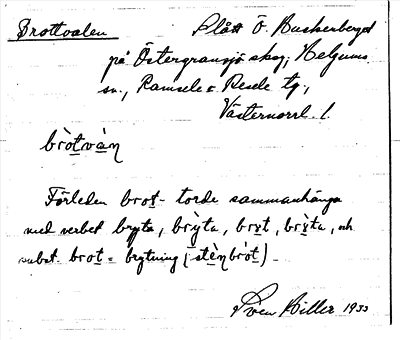 Brottvalen Plått Ö. Buckerberget
på Östergransjö skog, Helgums
sn., Ramsele o. Resele tg.,
Västernorrl. l.
bròtvàn
Förleden brot- torde sammanhänga
med verbet bryta, brỳta, brxt, brx̀ta, och
subst. brot = brytning (stènbròt).
Sven Hiller 1933